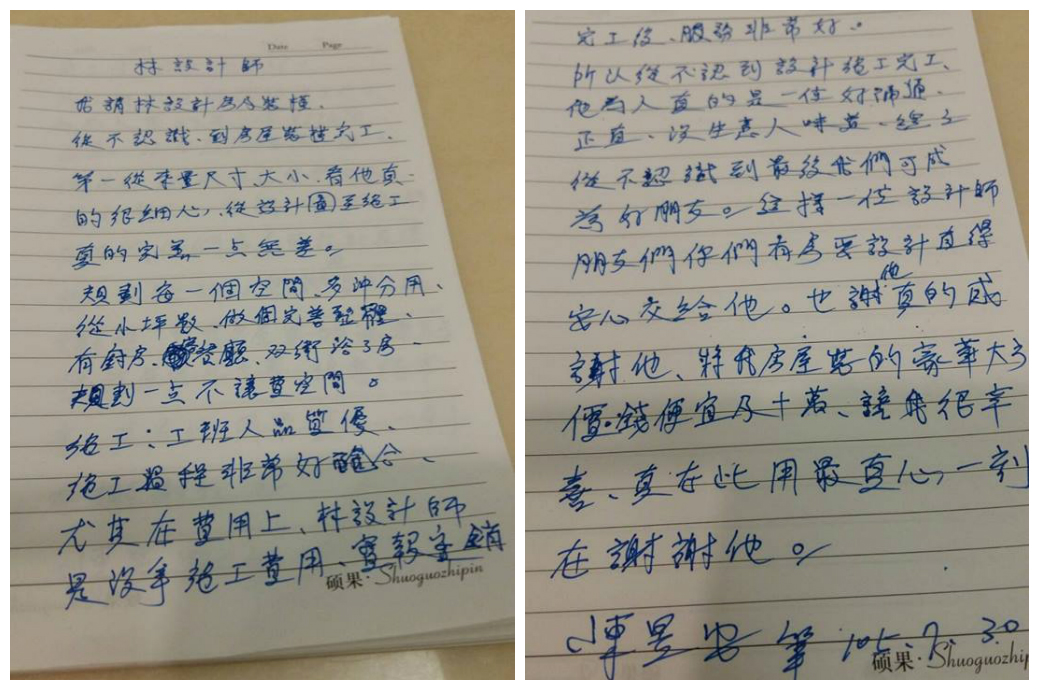 Date Page
林設計師
林設計房屋裝
從不認識、到房屋裝 完工、
第一從丈量尺寸、大小、看他真
的很細心、從設計圖至施工
真的完美一点無差。
規劃每一個空間、多 分用、
從小坪數、做個完善整體、
有廚房、餐廳、双衛浴3房、
規劃一点不讓費空間。
施工:工班人品質優、
施工過程非常好配合、
尤其在費用上、林設計師
是沒 施工費用、實報 銷
硕果·Shuoguozhipin
完工後、服務非常好。
所以從不認到設計施工完工、
他為人真的是一位好溝通、
正直、沒生意人味道、
從不認識到最後我們可成
為好朋友。這樣一位設計師
朋友們你們有房要設計直得
安心交給他。也謝他真的感
謝他、將我房屋裝的豪華大方
價錢便宜及十萬、讓我很幸
喜、真在此用最真心、一刻
在謝謝他。
陳 筆 105.7.30
硕果·Shuoguozhipi